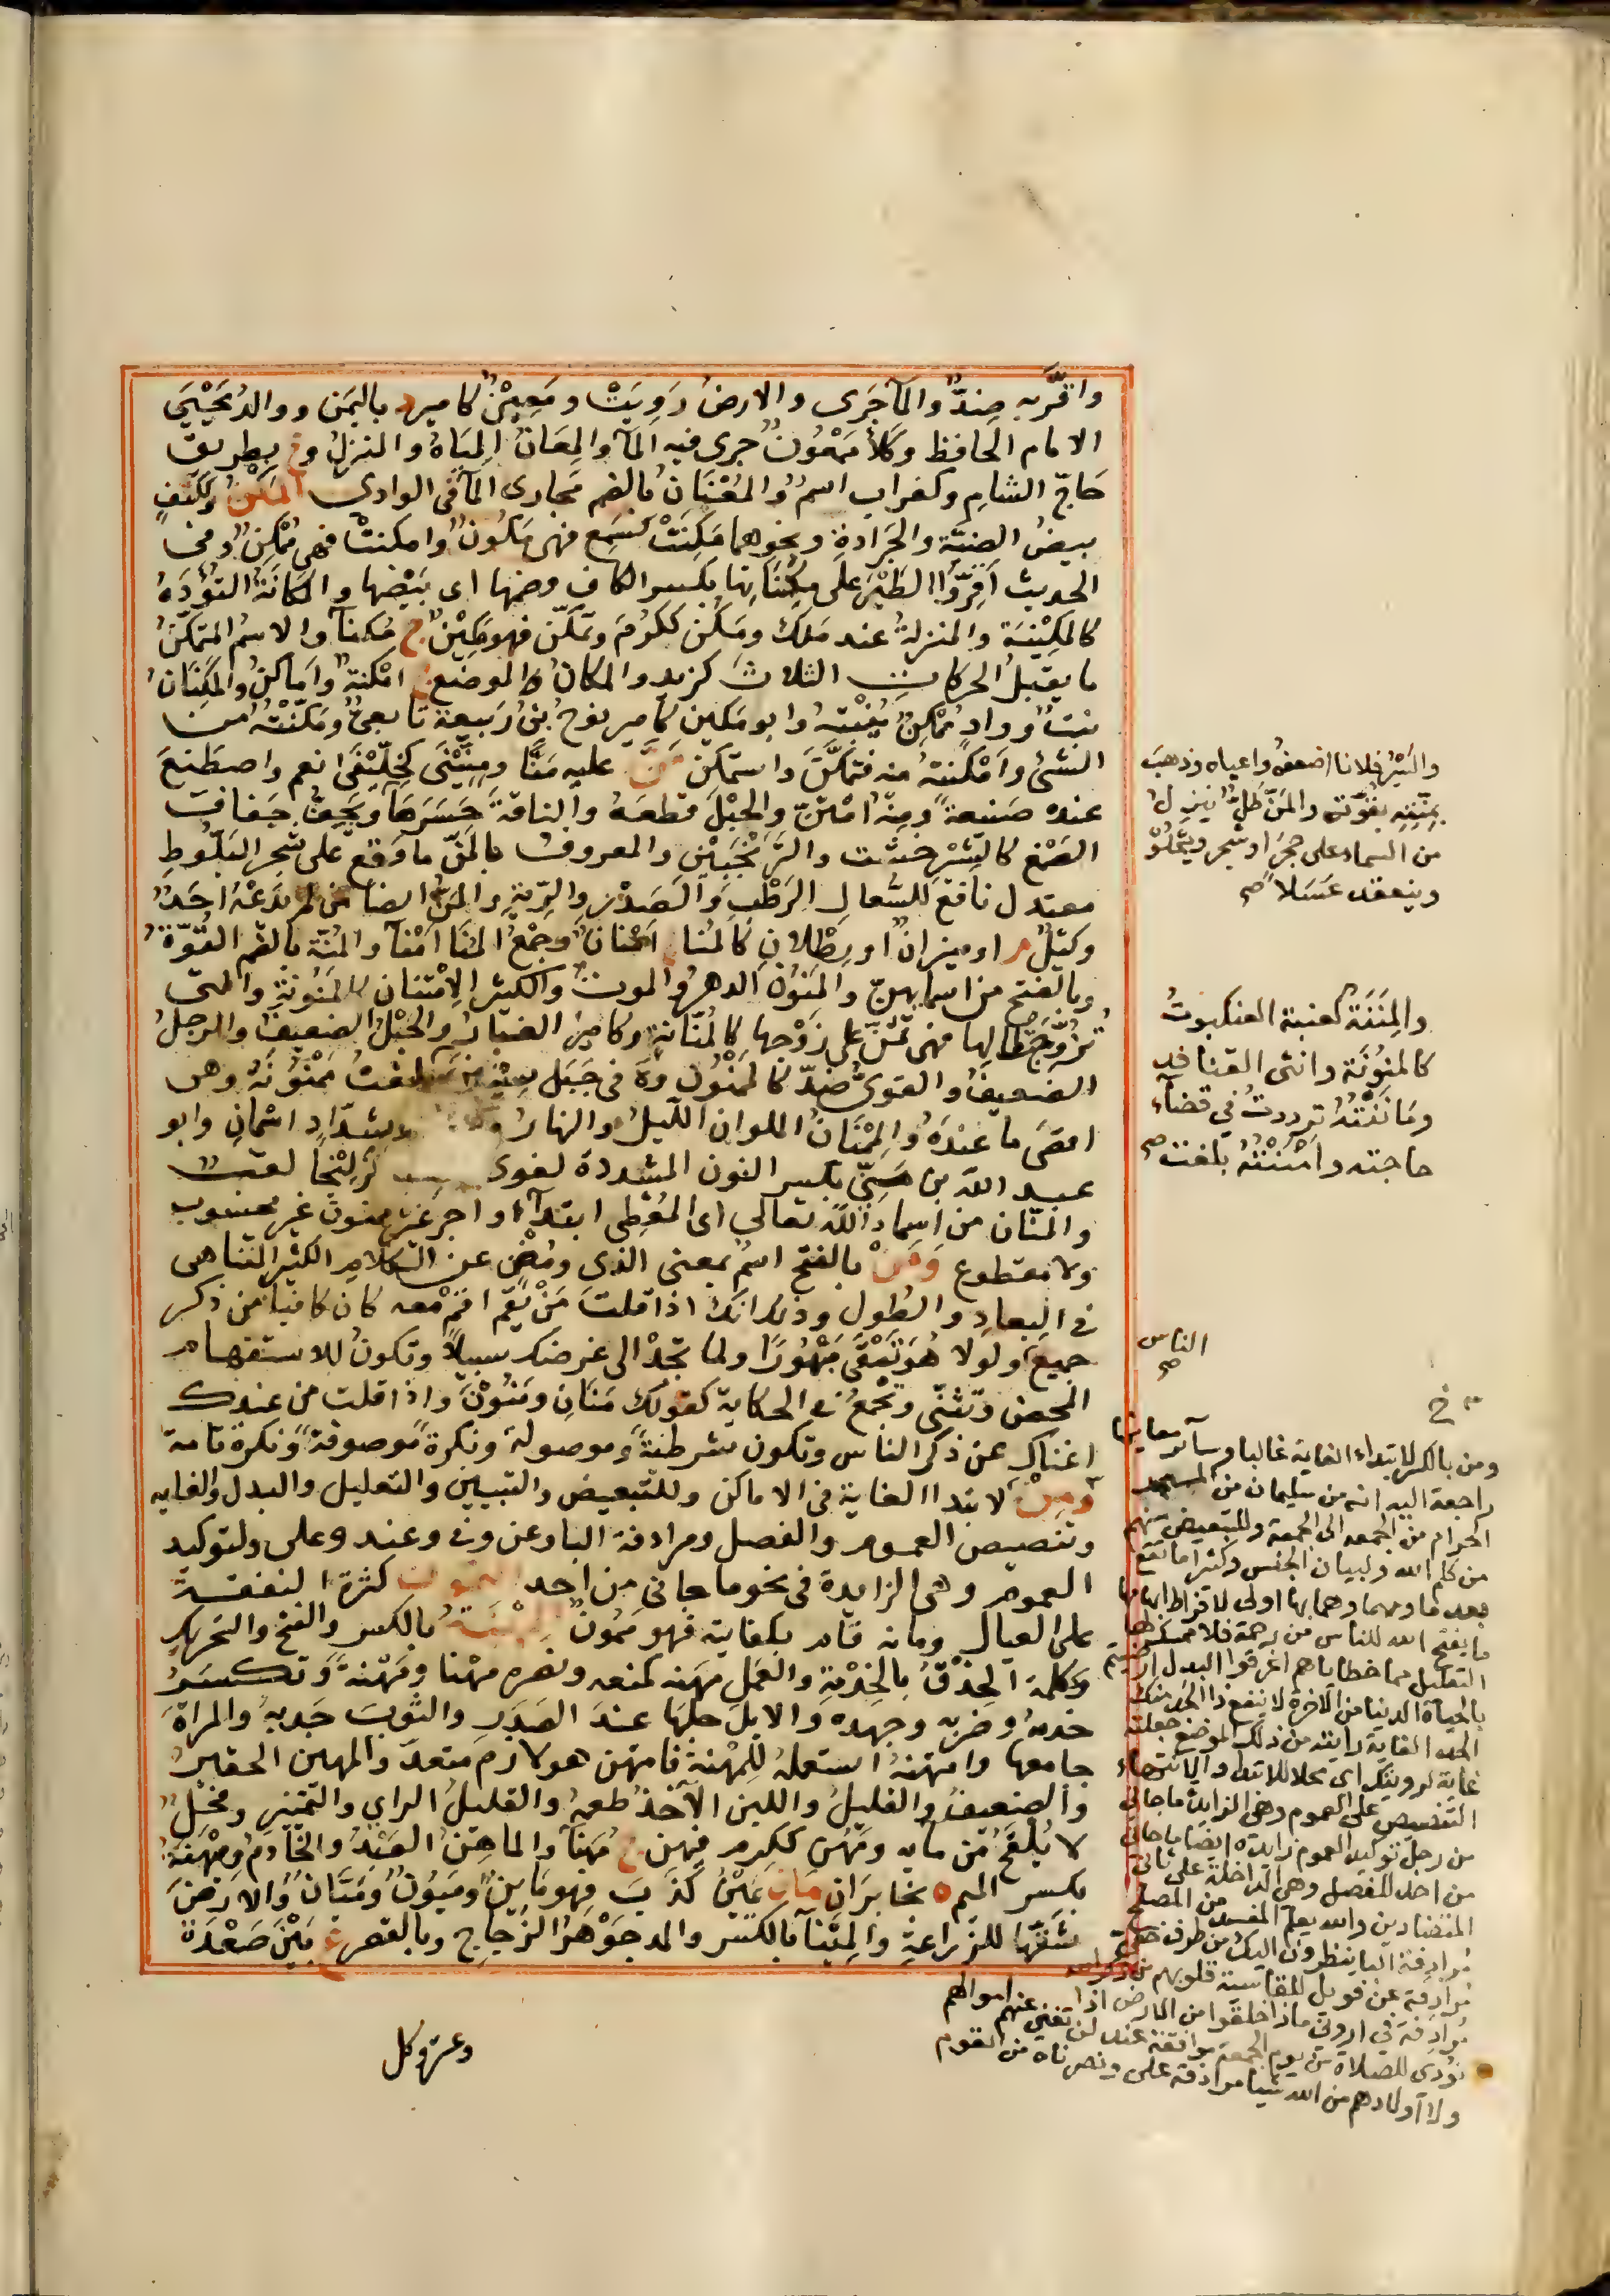 واقرّ به ضِدٌّ والمآ جَرى والارضُ رَوِيَتْ ومَعِيْنٌ كاميرٍ د باليمَن ووالدُ يَحْيَي
الامام الحافظ وكَلأٌ مَمْعُونٌ جرى فيه المآ والمعَانُ المبَاةُ والمنزلُ وع بطريق
حَاجّ الشامِ وكغراب اسمٌ والمُعْنَانُ بالضم مَجارى المآ فى الوادى المَكْنُ وككَتفٍ
بيضُ الضبّة والجَرادةِ ونحوهما مَكِنَتْ كَسَمِع فهى مَكُونٌ وامكنتْ فهى مُمْكِنٌ وفى
الحديث اَقِرّوا الطَيْرَ على مكِنَاتها بكسر الكاف وضمها اى بَيْضها والمَكَانَةُ التؤَدَةُ
كالمَكِيْنَة والمنزلةُ عند مَلك ومَكُنَ ككَرُمَ وتمكّن فهو مَكِيْنٌ ج مُكنآ والاسمُ المتمكّنُ
ما يقبلُ الحركاتِ الثلاثَ كزيد والمكانُ الموضعُ ج امْكنةٌ واَماكنُ والمَكْنَانُ
نبتٌ ووادٍ مُمْكِنٌ يُنْبتهُ وابو مَكين كامير نوحُ بنُ رَبيعة تابعىٌّ ومَكَّنْتُه من
الشئ واَمْكنتهُ منه فتمكَّنَ واستمكَن مَنَّ عليه مَنًّا ومِنِّيْنَى كخِلِّيْفَى انعم واصطَنَعَ
عنده صَنيعةً ومِنّةً امْتَنّ والحبْلَ قطعَهُ والناقةَ حَسَرَهَا
الصَمْغ كالشِيْرخشْت والتَرَنْجَبيْن والمعروفُ بالمَنّ ما وقع على شجر البَلّوطِ
معتدل نافع للسُّعال الرَطْب والصَدْر والرِئةِ والمَنُّ ايضًا من لم يدّعْهُ احَدٌ
وكيْلٌ م او ميزانٌ او رطْلان كالمَنَا ج اَمْنانٌ وجمْعُ المَنَا اَمْنآ والمُنّة بالضم القُوّةُ
وبالفتح من اسمآئهنّ والمَنُوْنُ الدهرُ والموتُ والكثيرُ الامْتنان كالمَنُونةِ والتى
تزَوّجَتْ لمالها فهى تمُنّ على زَوْجها كالمنّانةِ وكاميرٍ الغبَارُ والحَبْلُ الضعيفُ والرجلُ
الضعيفُ والقوىُّ ضدّ كالمَمْنُون وة فى جَبَل مَمْنُونَهُ وهى
اقصَى ما عندَهُ والمُمِنّانُ المَلوان الليلُ والنهارُ وكشدّاد اسْمانِ وابو
عبد الله بن مَنِّى بكسر النون المشددة لغوى لقب
والمنّان من اسمآء الله تعالى اى المُعْطِى ابتدآءً واجر غير ممنون غير محسوب
ولا مقطوع وَمَنْ بالفتح اسمٌ بمعنى الذى ومُغْنٍ عن الكلامِ الكثير المتناهى
فى البعادِ والطُول وذلك انك اذا قلتَ مَنْ يقُم اقُمْ معه كان كافيا من ذكر
جميع ولولا هُوَ تبْقى مَبْهُورًا ولما تجدْ الى غرضك سبيلاً وتكونُ للاستفهام
المحض وتثنّى وتجْمعُ فى الحكاية كقولك مَنَانِ ومَنُوْنَ واذا قلت من عندك
اغناك عن ذكر الناس وتكون شرطيّةً وموصولةً ونكرةً موصوفةً ونكرة تامة
ومِنْ لابتدا الغاية فى الاماكن وللتبعيض والتبيين والتعليل والبدل والغايه
وتنصيص العموم والفصل ومرادفة البا وعن وفى وعند وعلى ولتوكيد
العموم وهى الزايدة فى نحو ما جانى من احد التمون كثرة النفقة
على العيال ومانه قام بكفايته فهو مَمُونٌ المِهْنَةُ بالكسر والفتح والتحريكِ
وككلمة الحِذْقُ بالخدْمةِ والعَمل مهَنه كمنعه ونصره مهْنا ومَهْنةً وتكسَرُ
خدمهُ وضربه وجهده والابلَ حلبَها عندَ الصَدَرِ والثوبَ جَذبهُ والمراةَ
جامعها وامتهنهُ استعملهُ للمِهْنةِ فامتهن هو لازم متعدّ والمهين الحقيرُ
والضعيفُ والقليلُ واللبن الآخذُ طعمهُ والقليلُ الراىِ والتمييز وفحْلٌ
لا يُلقحُ من مآئه ومَهُن ككرم فيهن ج مُهَنآ والماهِنُ العَبْدُ والخادمُ ومِهْنَةُ
بكسر الميم ة بخابَران مَانَ يَمِيْنُ كذَبَ فهو مَايِنٌ ومَيُوْنٌ ومَيَّانٌ والارَضْنَ
شَقَّها للزراعةِ والمِيْنآ بالكسْر والمد جَوْهرُ الزُجاجِ وبالقصرِ ع مَيْنَ صَعْدَةَ
والسَّيْرُ فلانا اضعفهُ واعياه وذهبَ
بمنّتِهِ بقوّته والمَنّ طَلٌّ ينزل
من السماء على حجَر او شجر ويحْلُوْ
وينعقد عَسَلا صح
والمِنَنَة كعنبة العنكبوتُ
كالمنوُنَة وانثى القنافد
ومَانَنْتهُ ترددتُ فى قضآء
حاجته وامْننْتهُ بلغت صح
الناس
صح
خ
ومن بالكسر لابتداء الغاية غالبا وسآئر معانيها
راجعة اليه انه من سليمان من المسجد
الحرام من الجمعه الى الجمعة وللتبعيض منهم
من كلم الله ولبيان الجنس وكثيرا ما تقع
بعد ما ومهما وهما بها اولى لافراط ابهامها
ما يفتح الله للناس من رحمة فلا ممسك لها
التعليل مما خطاياهم اغرقوا البدل ارضيتم
بالحياة الدنيا من الاخرة لا ينفع ذا الجد منك
الجد الغاية رايته من ذلك الموضع جعلته
غاية لرويتك اى محلا للابتدا والانتهاء
التنصيص على العموم وهى الزايدة ما جانى
من رجل توكيد العموم زايدة ايضا ما جانى
من احد الفصل وهى الداخلة على ثانى
المتضادين والله يعلم المفسد من المصلح
مرادفة البا ينظرون اليك من طرف خفى
مرادفة عن فويل للقاسية قلوبهم من ذكر الله
مرادفة فى ارونى ماذا خلقوا من الارض اذا
نودى للصلاة من يوم الجمعة موافقة عند لن تغنى عنهم اموالهم
ولا اولادهم من الله شيا مرادفة على ونصرناه من القوم